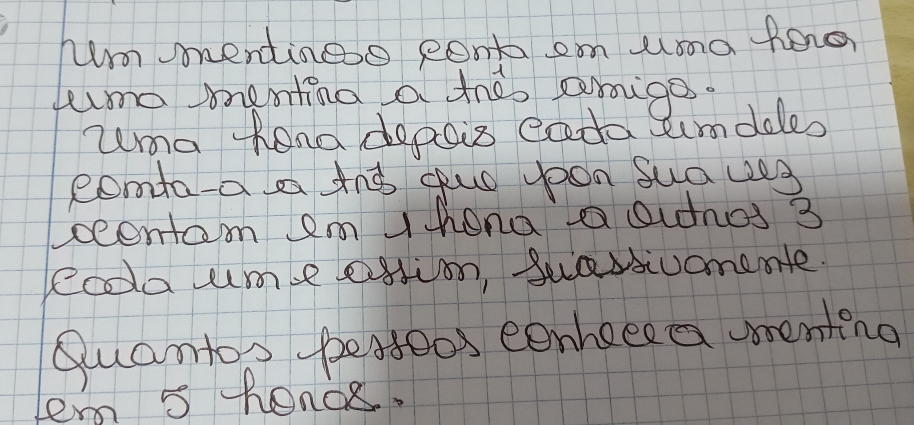 Um mentiroso conta em uma hora
uma mentira a três amigo.
Uma hora depois cada um deles
conta-a a três que por sua vez
contam em 1 hora a outros 3
cada um e assim, suassivamente.
Quantos pessoas conhece a mentira
em 5 horas.